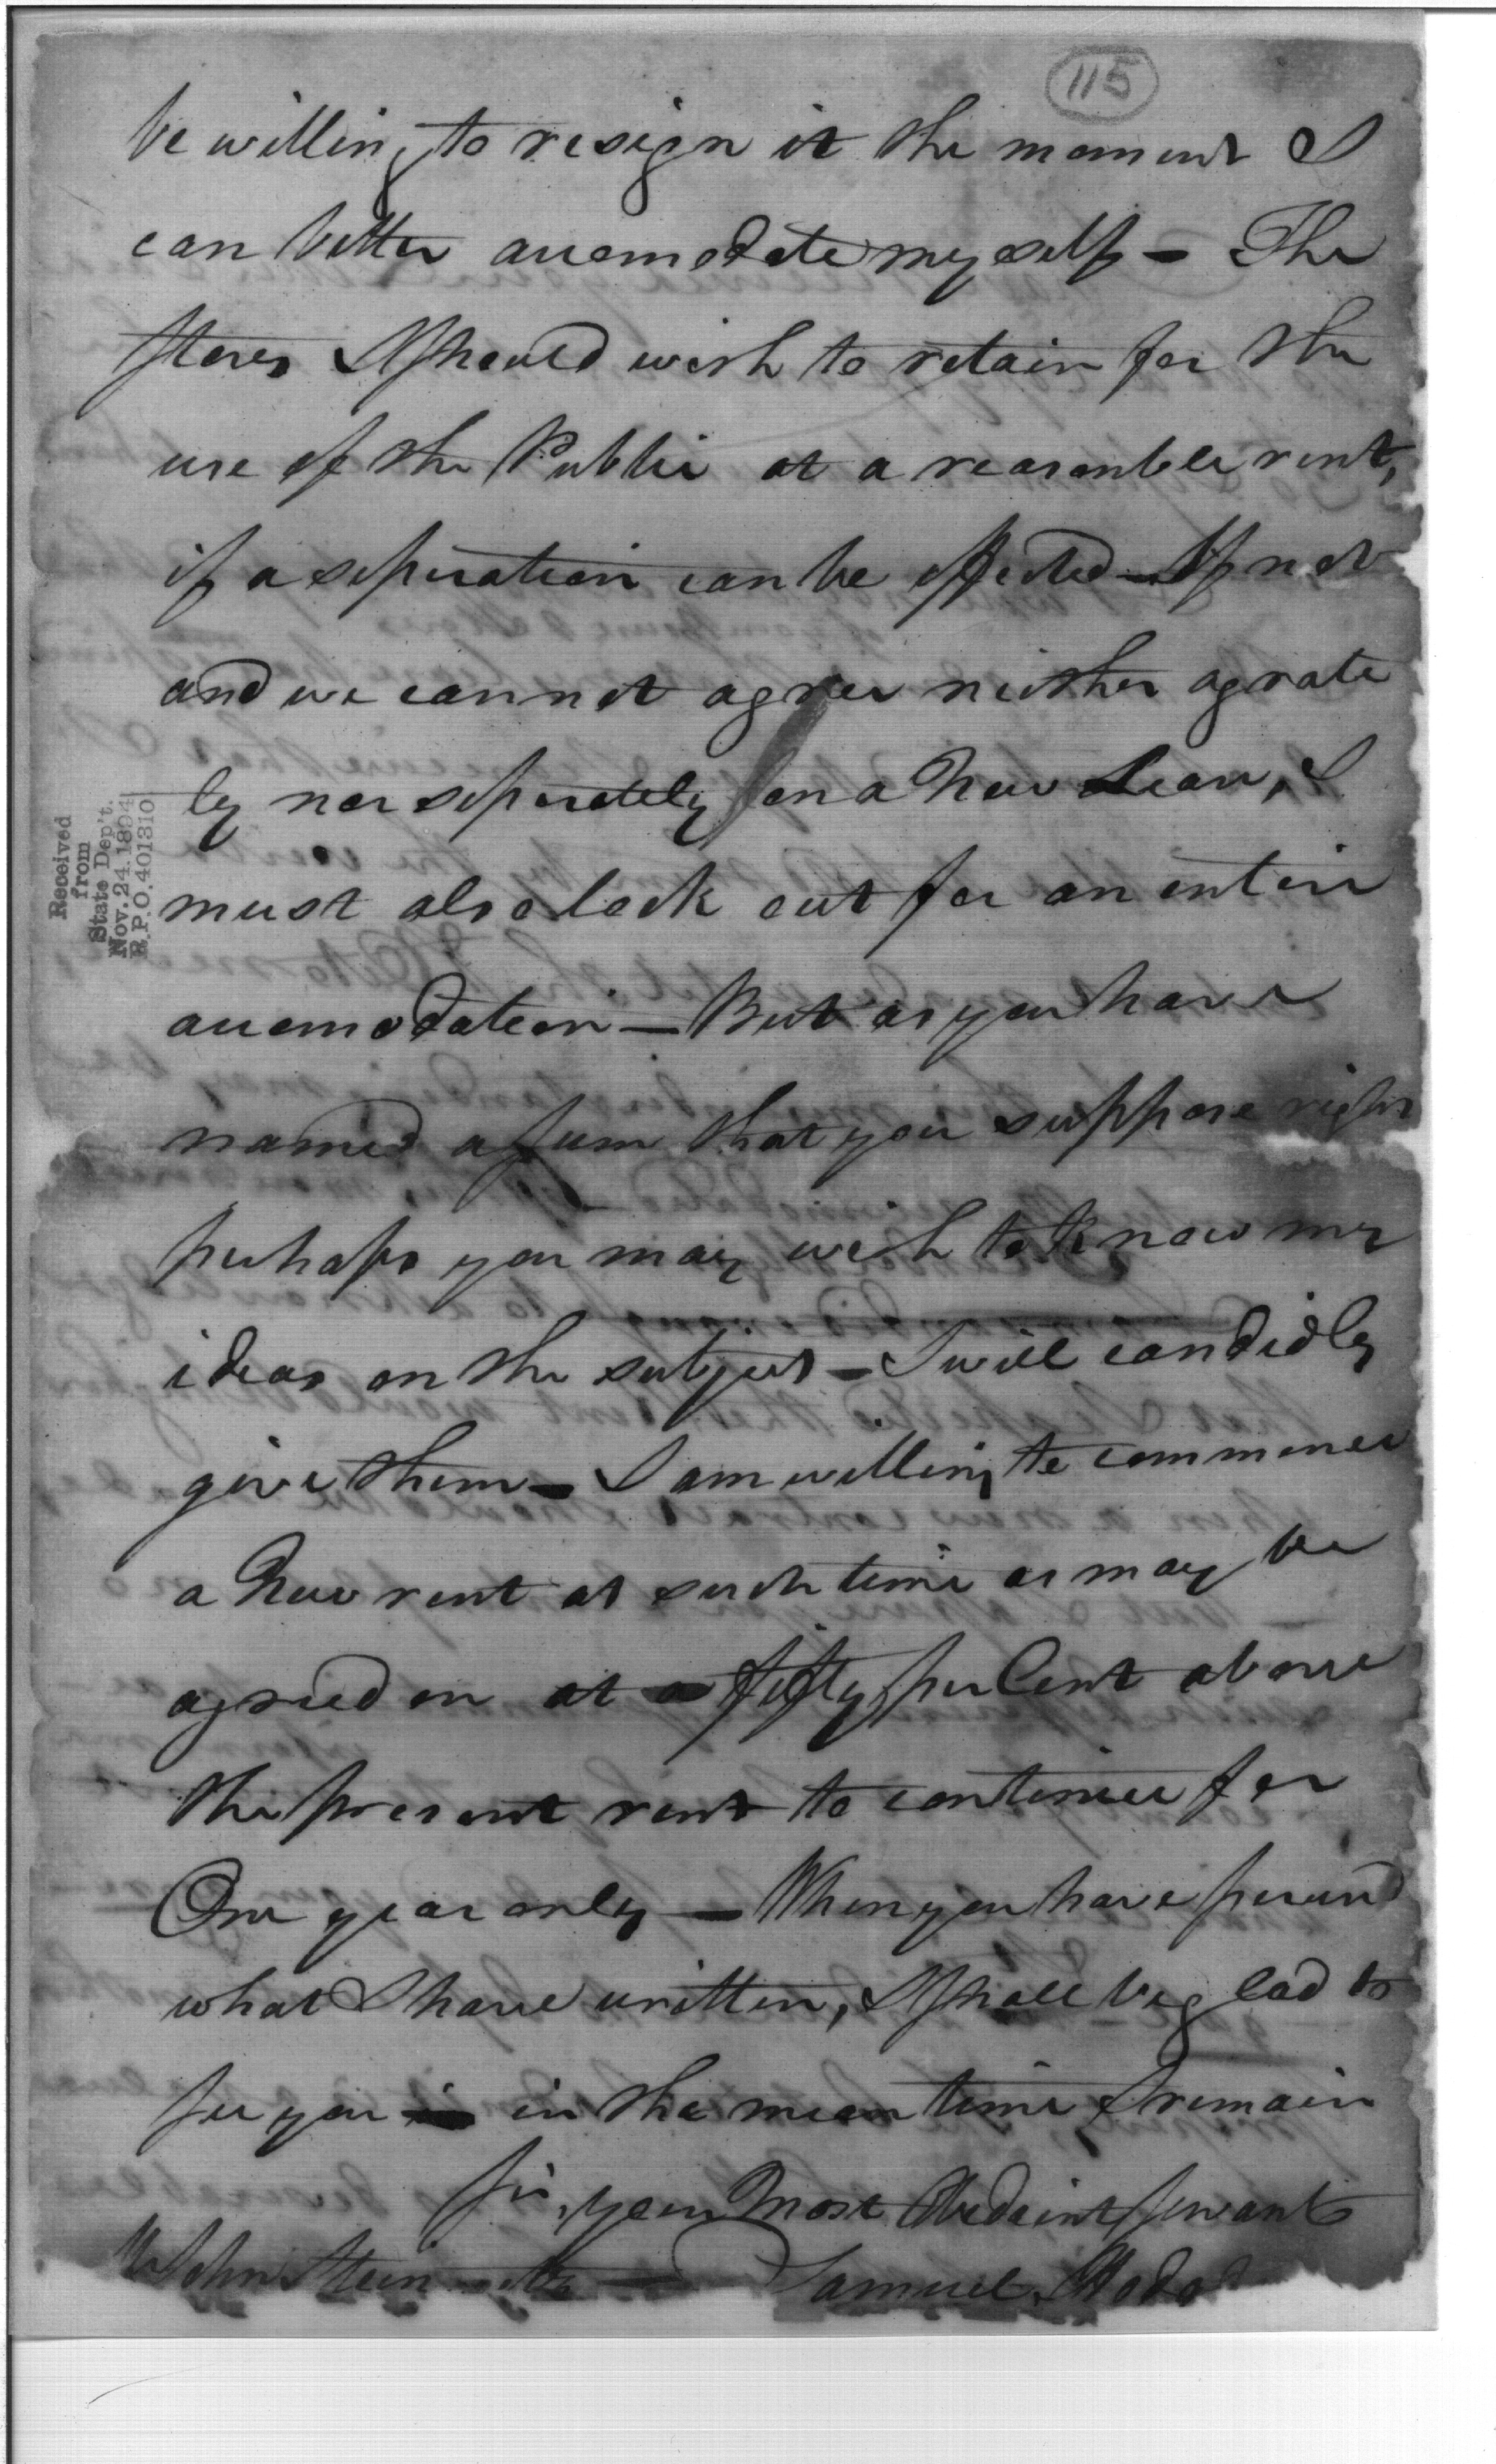 115
be willing to resign it the moment I
can better accomodate myself - The
stores I should wish to retain for the
use of the Public at a reasonble rent,
if a seperation can be effected - If not
and we cannot agree neither agrate
ly nor seperately for a New Lease, I
must also look out for an entire
accomodation - But as you have
named a sum that you suppose right
perhaps you may wish to know my
ideas on the subject - I will candidly
give them - I am willing to commence
a New rent at such time as may be
agreed on at a fifty per Cent above
the present rent to continue for
One year only - When you have perused
what I have written, I shall be glad to
see you in the mean time I remain
Sir, your Most Obedient servant
Mr John Stein Samuel Hodg
Received
from
State Dep't.
Nov. 24. 1894
R.P.O. 401310